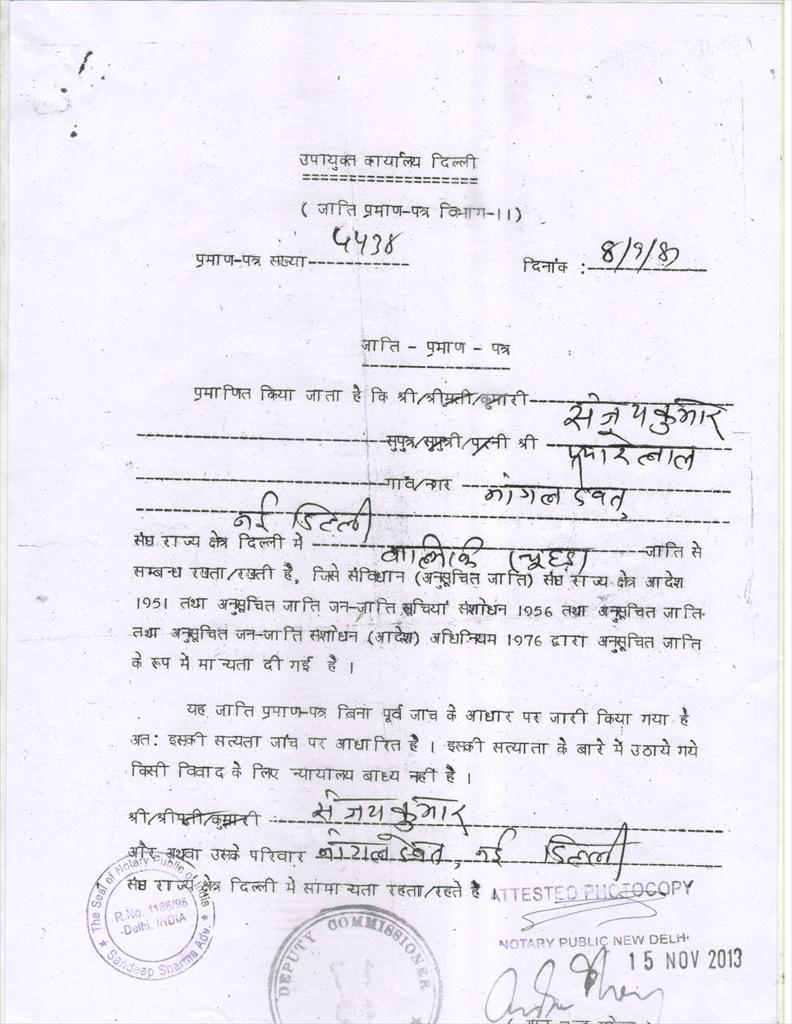 उपायुक्त कार्यालय दिल्ली
( जाति प्रमाण-पत्र विभाग-11)
प्रमाण-पत्र संख्या 5438
दिनांक :
जाति - प्रमाण - पत्र
प्रमाणित किया जाता है कि श्री/श्रीमती/कुमारी संजय कुमार
सुपुत्र/सुपुत्री/पत्नी श्री प्यारे लाल
गांव/नगर नांगल देवत
नई दिल्ली
संघ राज्य क्षेत्र दिल्ली में वाल्मिकि (चूहड़ा) जाति से
सम्बन्ध रखता/रखती है, जिसे संविधान (अनुसूचित जाति) संघ राज्य क्षेत्र आदेश
1951 तथा अनुसूचित जाति जन-जाति सूचियां संशोधन 1956 तथा अनुसूचित जाति
तथा अनुसूचित जन-जाति संशोधन (आदेश) अधिनियम 1976 द्वारा अनुसूचित जाति
के रूप में मान्यता दी गई है ।
यह जाति प्रमाण-पत्र बिना पूर्व जांच के आधार पर जारी किया गया है
अत: इसकी सत्यता जांच पर आधारित है । इसकी सत्याता के बारे में उठाये गये
किसी विवाद के लिए न्यायालय बाध्य नहीं है ।
श्री/श्रीमती/कुमारी संजय कुमार
और अथवा उसके परिवार नांगल देवत, नई दिल्ली
संघ राज्य क्षेत्र दिल्ली में सामान्यता रहता/रहते है
ATTESTED PHOTOCOPY
The Seal of Notary Public of India
R.No. 1186/96
-Delhi, INDIA
Sandeep Sharma Adv.
DEPUTY COMMISSIONER
NOTARY PUBLIC NEW DELHI
15 NOV 2013